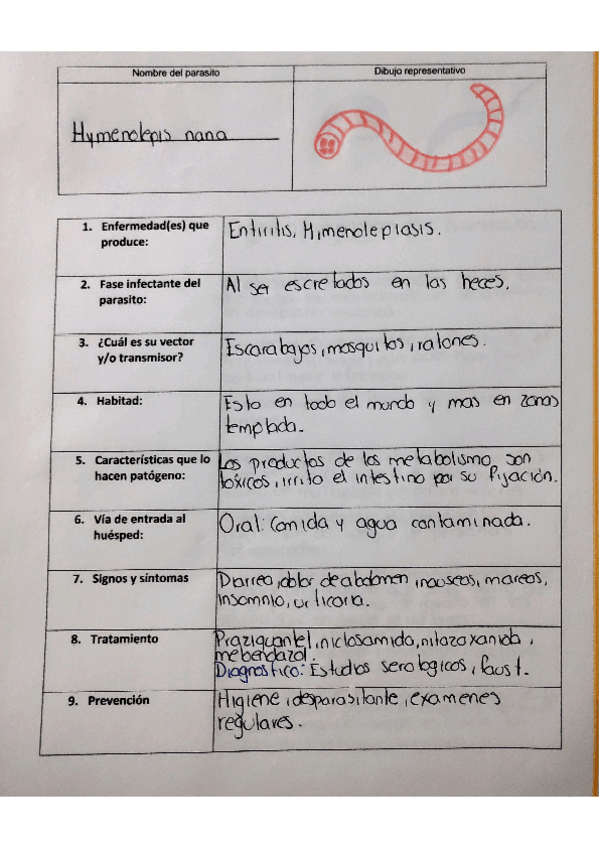 Nombre del parasito
Dibujo representativo
Hymenolepis nana
1. Enfermedad(es) que
produce:
Entiritis, Himenolepiasis.
2. Fase infectante del
parasito:
Al ser escretados en las heces.
3. ¿Cuál es su vector
y/o transmisor?
Escarabajos, mosquitos, ratones.
4. Habitad:
Esta en todo el mundo y mas en zonas
templada.
5. Características que lo
hacen patógeno:
Los productos de los metabolismo son
tóxicos, irrita el intestino por su fijación.
6. Vía de entrada al
huésped:
Oral: Comida y agua contaminada.
7. Signos y síntomas
Diarrea, dolor de abdomen, nauseas, mareos,
insomnio, urticaria.
8. Tratamiento
Praziquantel, niclosamida, nitazoxanida,
mebendazol.
Diagnostico: Estudios serologicos, faust.
9. Prevención
Higiene, desparasitante, examenes
regulares.